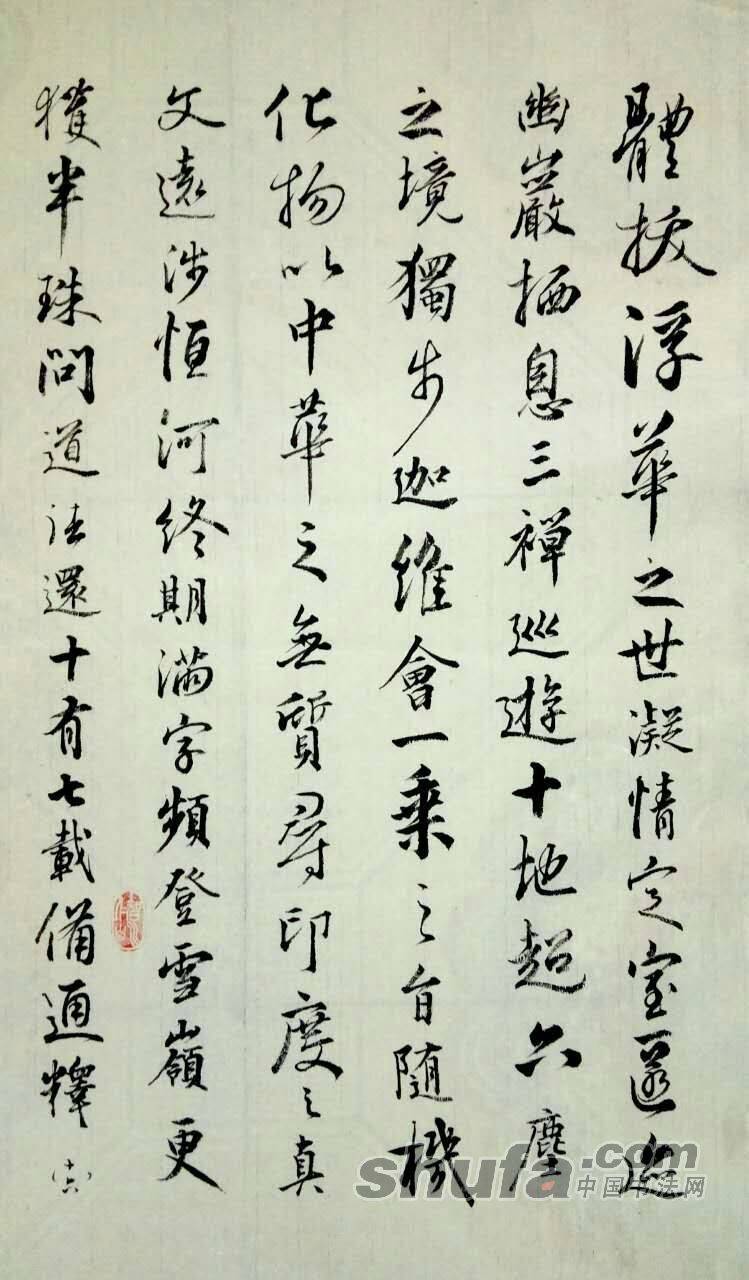 體拔浮華之世凝情定室匿跡
幽巖栖息三禪巡遊十地超六塵
之境獨步迦維會一乘之旨隨機
化物以中華之無質尋印度之真
文遠涉恒河終期滿字頻登雪嶺更
獲半珠問道往還十有七載備通釋
shufa.com
中国书法网